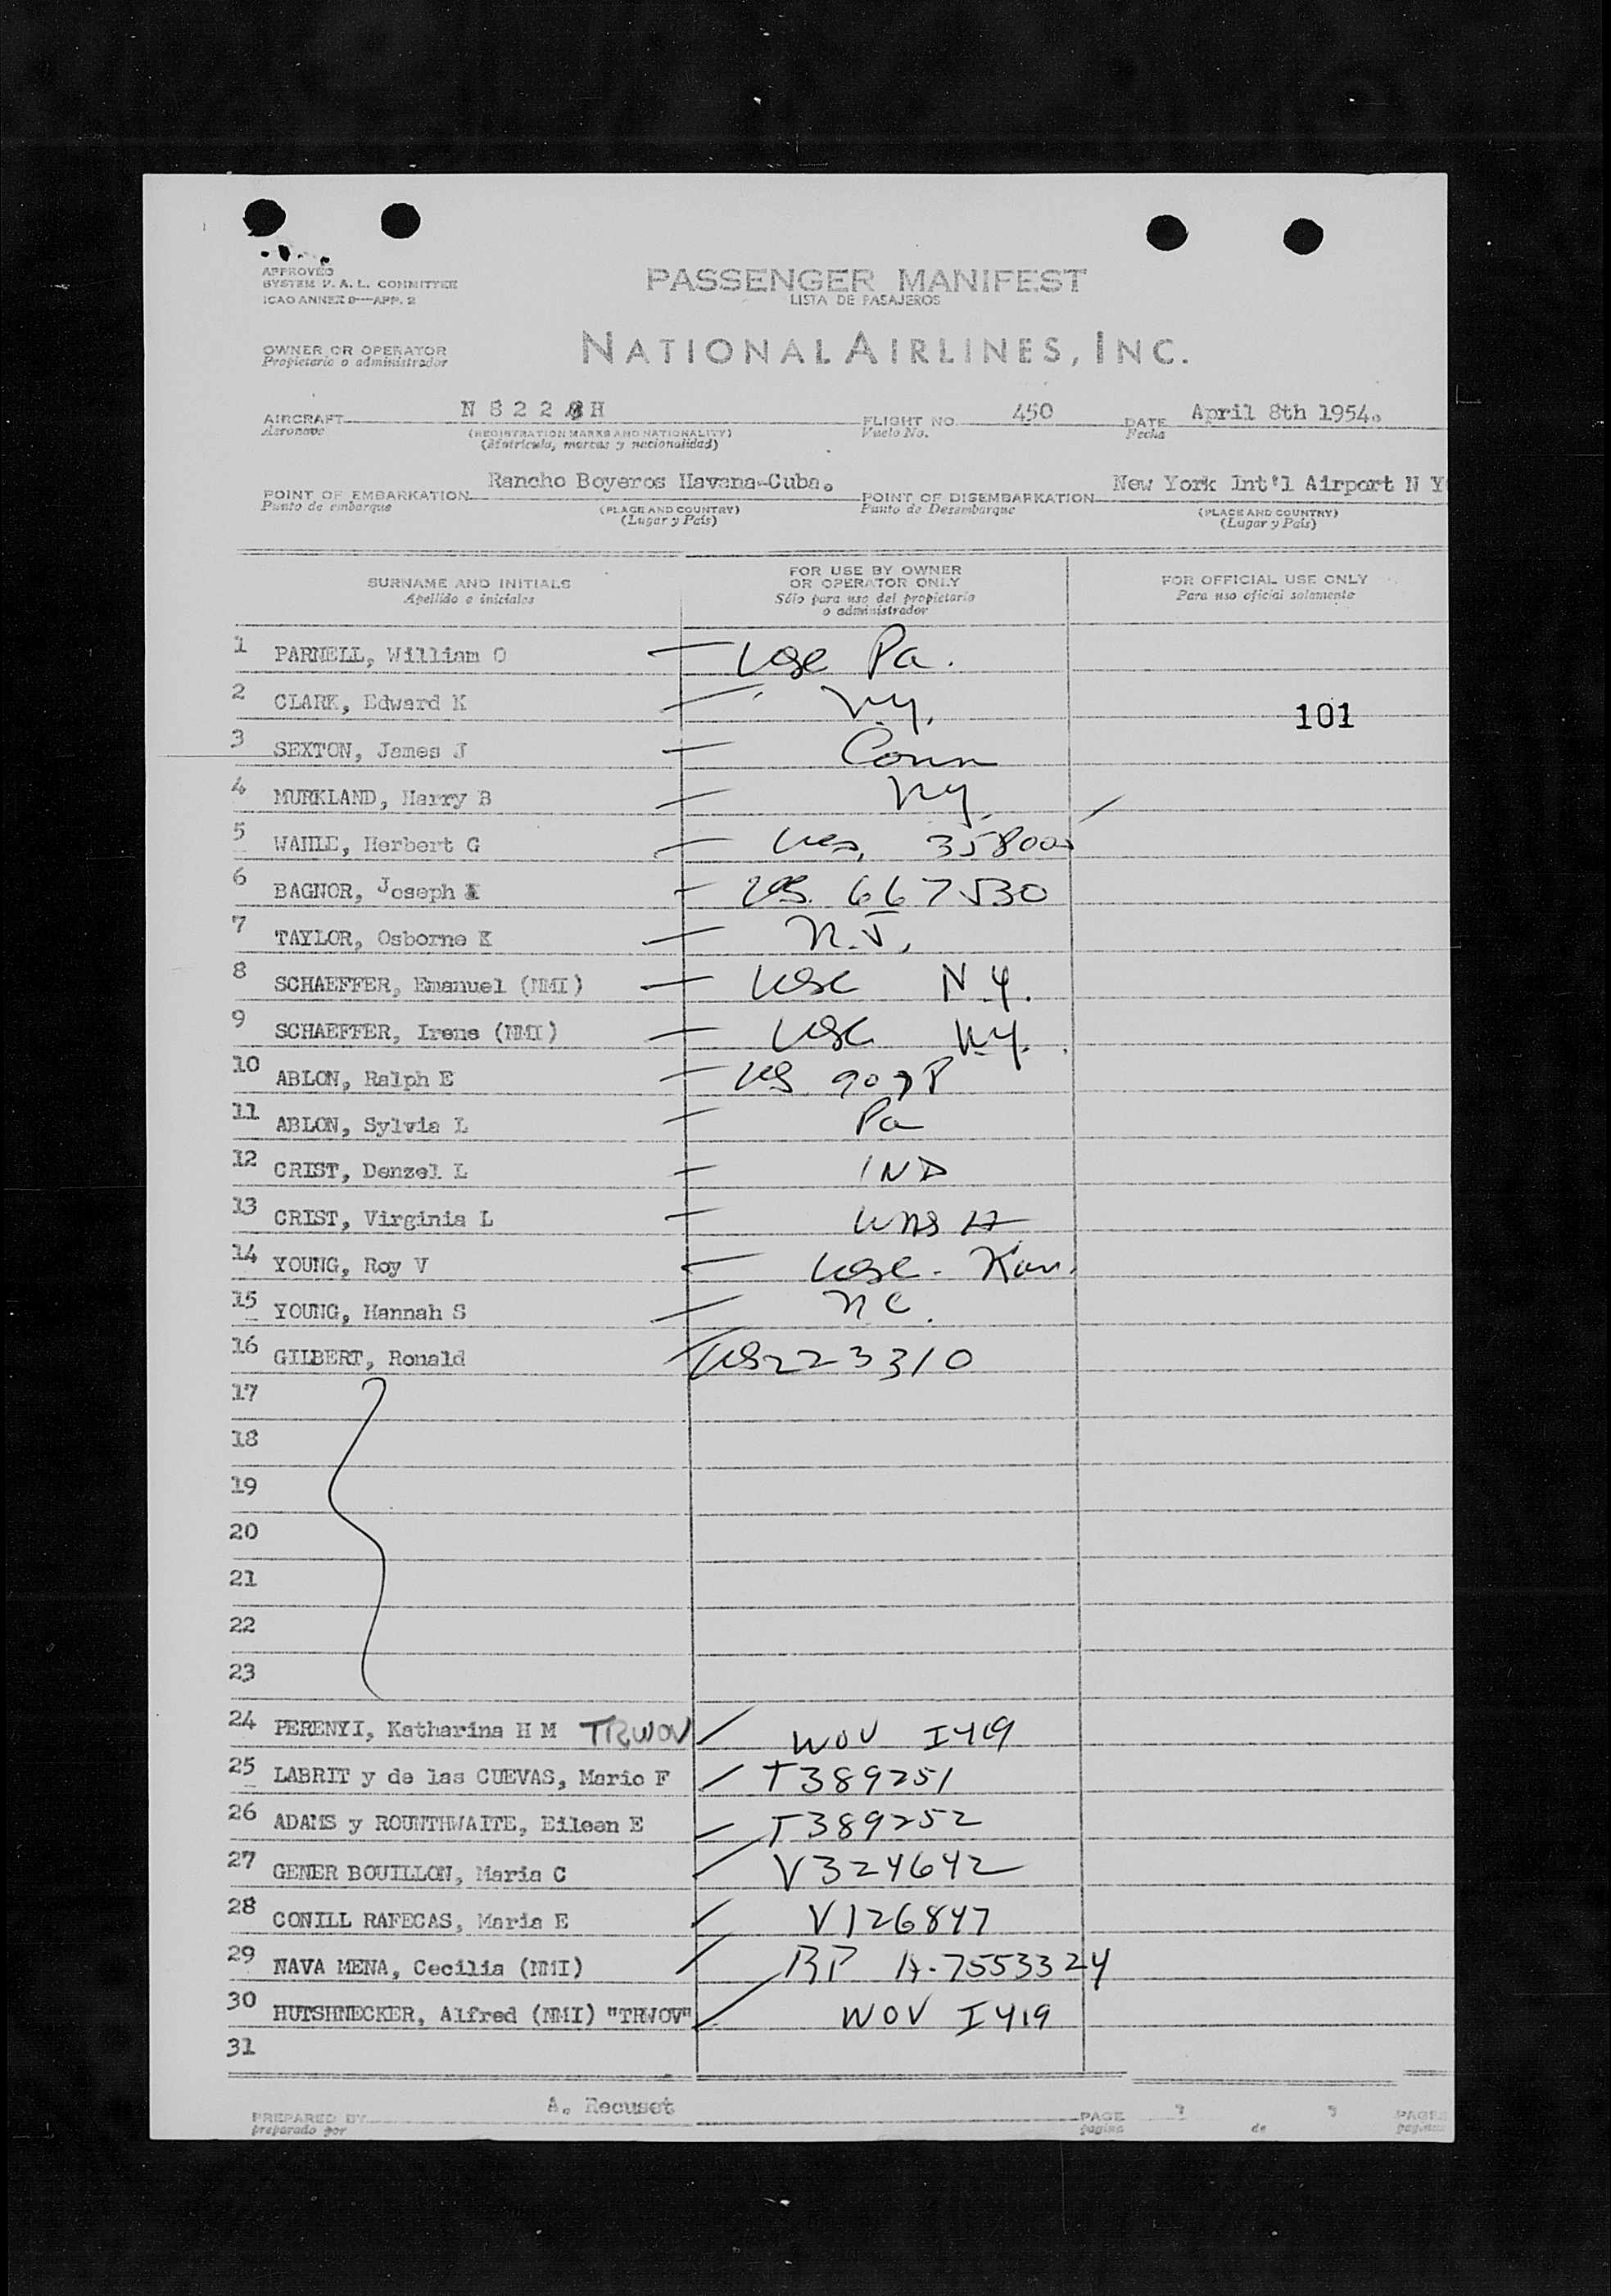 APPROVED
SYSTEM F. A. L. COMMITTEE
ICAO ANNEX 9—APP. 2
PASSENGER MANIFEST
LISTA DE PASAJEROS
OWNER OR OPERATOR
Propietario o administrador
NATIONAL AIRLINES, INC.
AIRCRAFT N 8 2 2 H FLIGHT NO. 450 DATE April 8th 1954.
Aeronave (REGISTRATION MARKS AND NATIONALITY) Vuelo No. Fecha
(Matrícula, marcas y nacionalidad)
POINT OF EMBARKATION Rancho Boyeros Havana-Cuba. POINT OF DISEMBARKATION New York Int'l Airport N Y
Punto de embarque (PLACE AND COUNTRY) Punto de Desembarque (PLACE AND COUNTRY)
(Lugar y País) (Lugar y País)
SURNAME AND INITIALS FOR USE BY OWNER OR OPERATOR ONLY FOR OFFICIAL USE ONLY
Apellido e iniciales Sólo para uso del propietario o administrador Para uso oficial solamente
1 PARNELL, William O — USC Pa.
2 CLARK, Edward K — " N.Y. 101
3 SEXTON, James J — Conn
4 MURKLAND, Harry B — N.Y.
5 WAHLE, Herbert G —
6 BAGNOR, Joseph — US. 667530
7 TAYLOR, Osborne K — N.J.
8 SCHAEFFER, Emanuel (NMI) — USC N.Y.
9 SCHAEFFER, Irene (NMI) — USC N.Y.
10 ABLON, Ralph E — US
11 ABLON, Sylvia L — Pa
12 CRIST, Denzel L — IND
13 CRIST, Virginia L — WASH
14 YOUNG, Roy V — USC. Kan.
15 YOUNG, Hannah S — N C.
16 GILBERT, Ronald US223310
17
18
19
20
21
22
23
24 PERENYI, Katharina H M TRWOV WOV I419
25 LABRIT y de las CUEVAS, Mario F T389251
26 ADAMS y ROUNTHWAITE, Eileen E T389252
27 GENER BOUILLON, Maria C V324642
28 CONILL RAFECAS, Maria E V126847
29 NAVA MENA, Cecilia (NMI) RP A-7553324
30 HUTSHNECKER, Alfred (NMI) "TRWOV" WOV I419
31
PREPARED BY A. Recuset PAGE PAGES
preparado por página de páginas